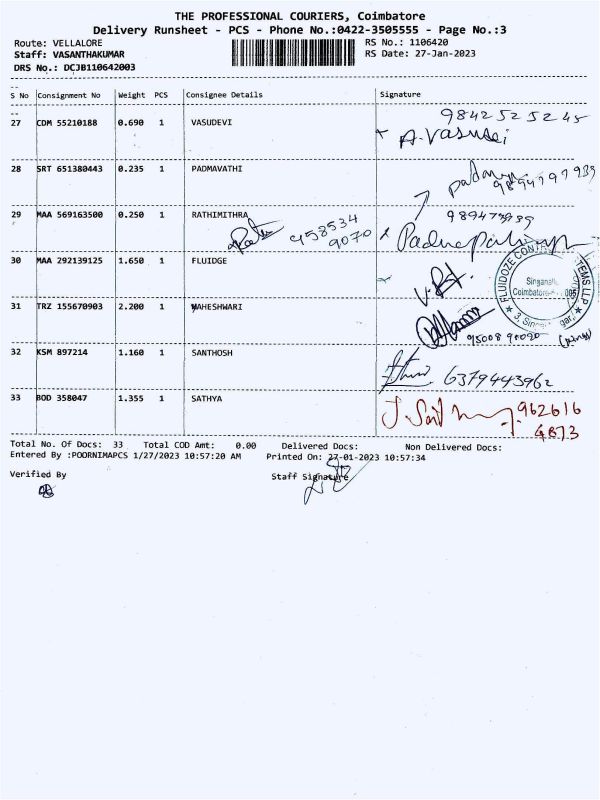 THE PROFESSIONAL COURIERS, Coimbatore
Delivery Runsheet - PCS - Phone No.:0422-3505555 - Page No.:3
Route: VELLALORE
RS No.: 1106420
Staff: VASANTHAKUMAR
RS Date: 27-Jan-2023
DRS No.: DCJB110642003
S No Consignment No Weight PCS Consignee Details Signature
27 CDM 55210188 0.690 1 VASUDEVI 9842525245
A. Vasudei
28 SRT 651380443 0.235 1 PADMAVATHI
29 MAA 569163500 0.250 1 RATHIMITHRA
958534
9070
30 MAA 292139125 1.650 1 FLUIDGE
31 TRZ 155670903 2.200 1 MAHESHWARI
95008 90090
32 KSM 897214 1.160 1 SANTHOSH 6379443962
33 BOD 358047 1.355 1 SATHYA 962616
4873
Total No. Of Docs: 33 Total COD Amt: 0.00 Delivered Docs: Non Delivered Docs:
Entered By :POORNIMAPCS 1/27/2023 10:57:20 AM Printed On: 27-01-2023 10:57:34
Verified By Staff Signature